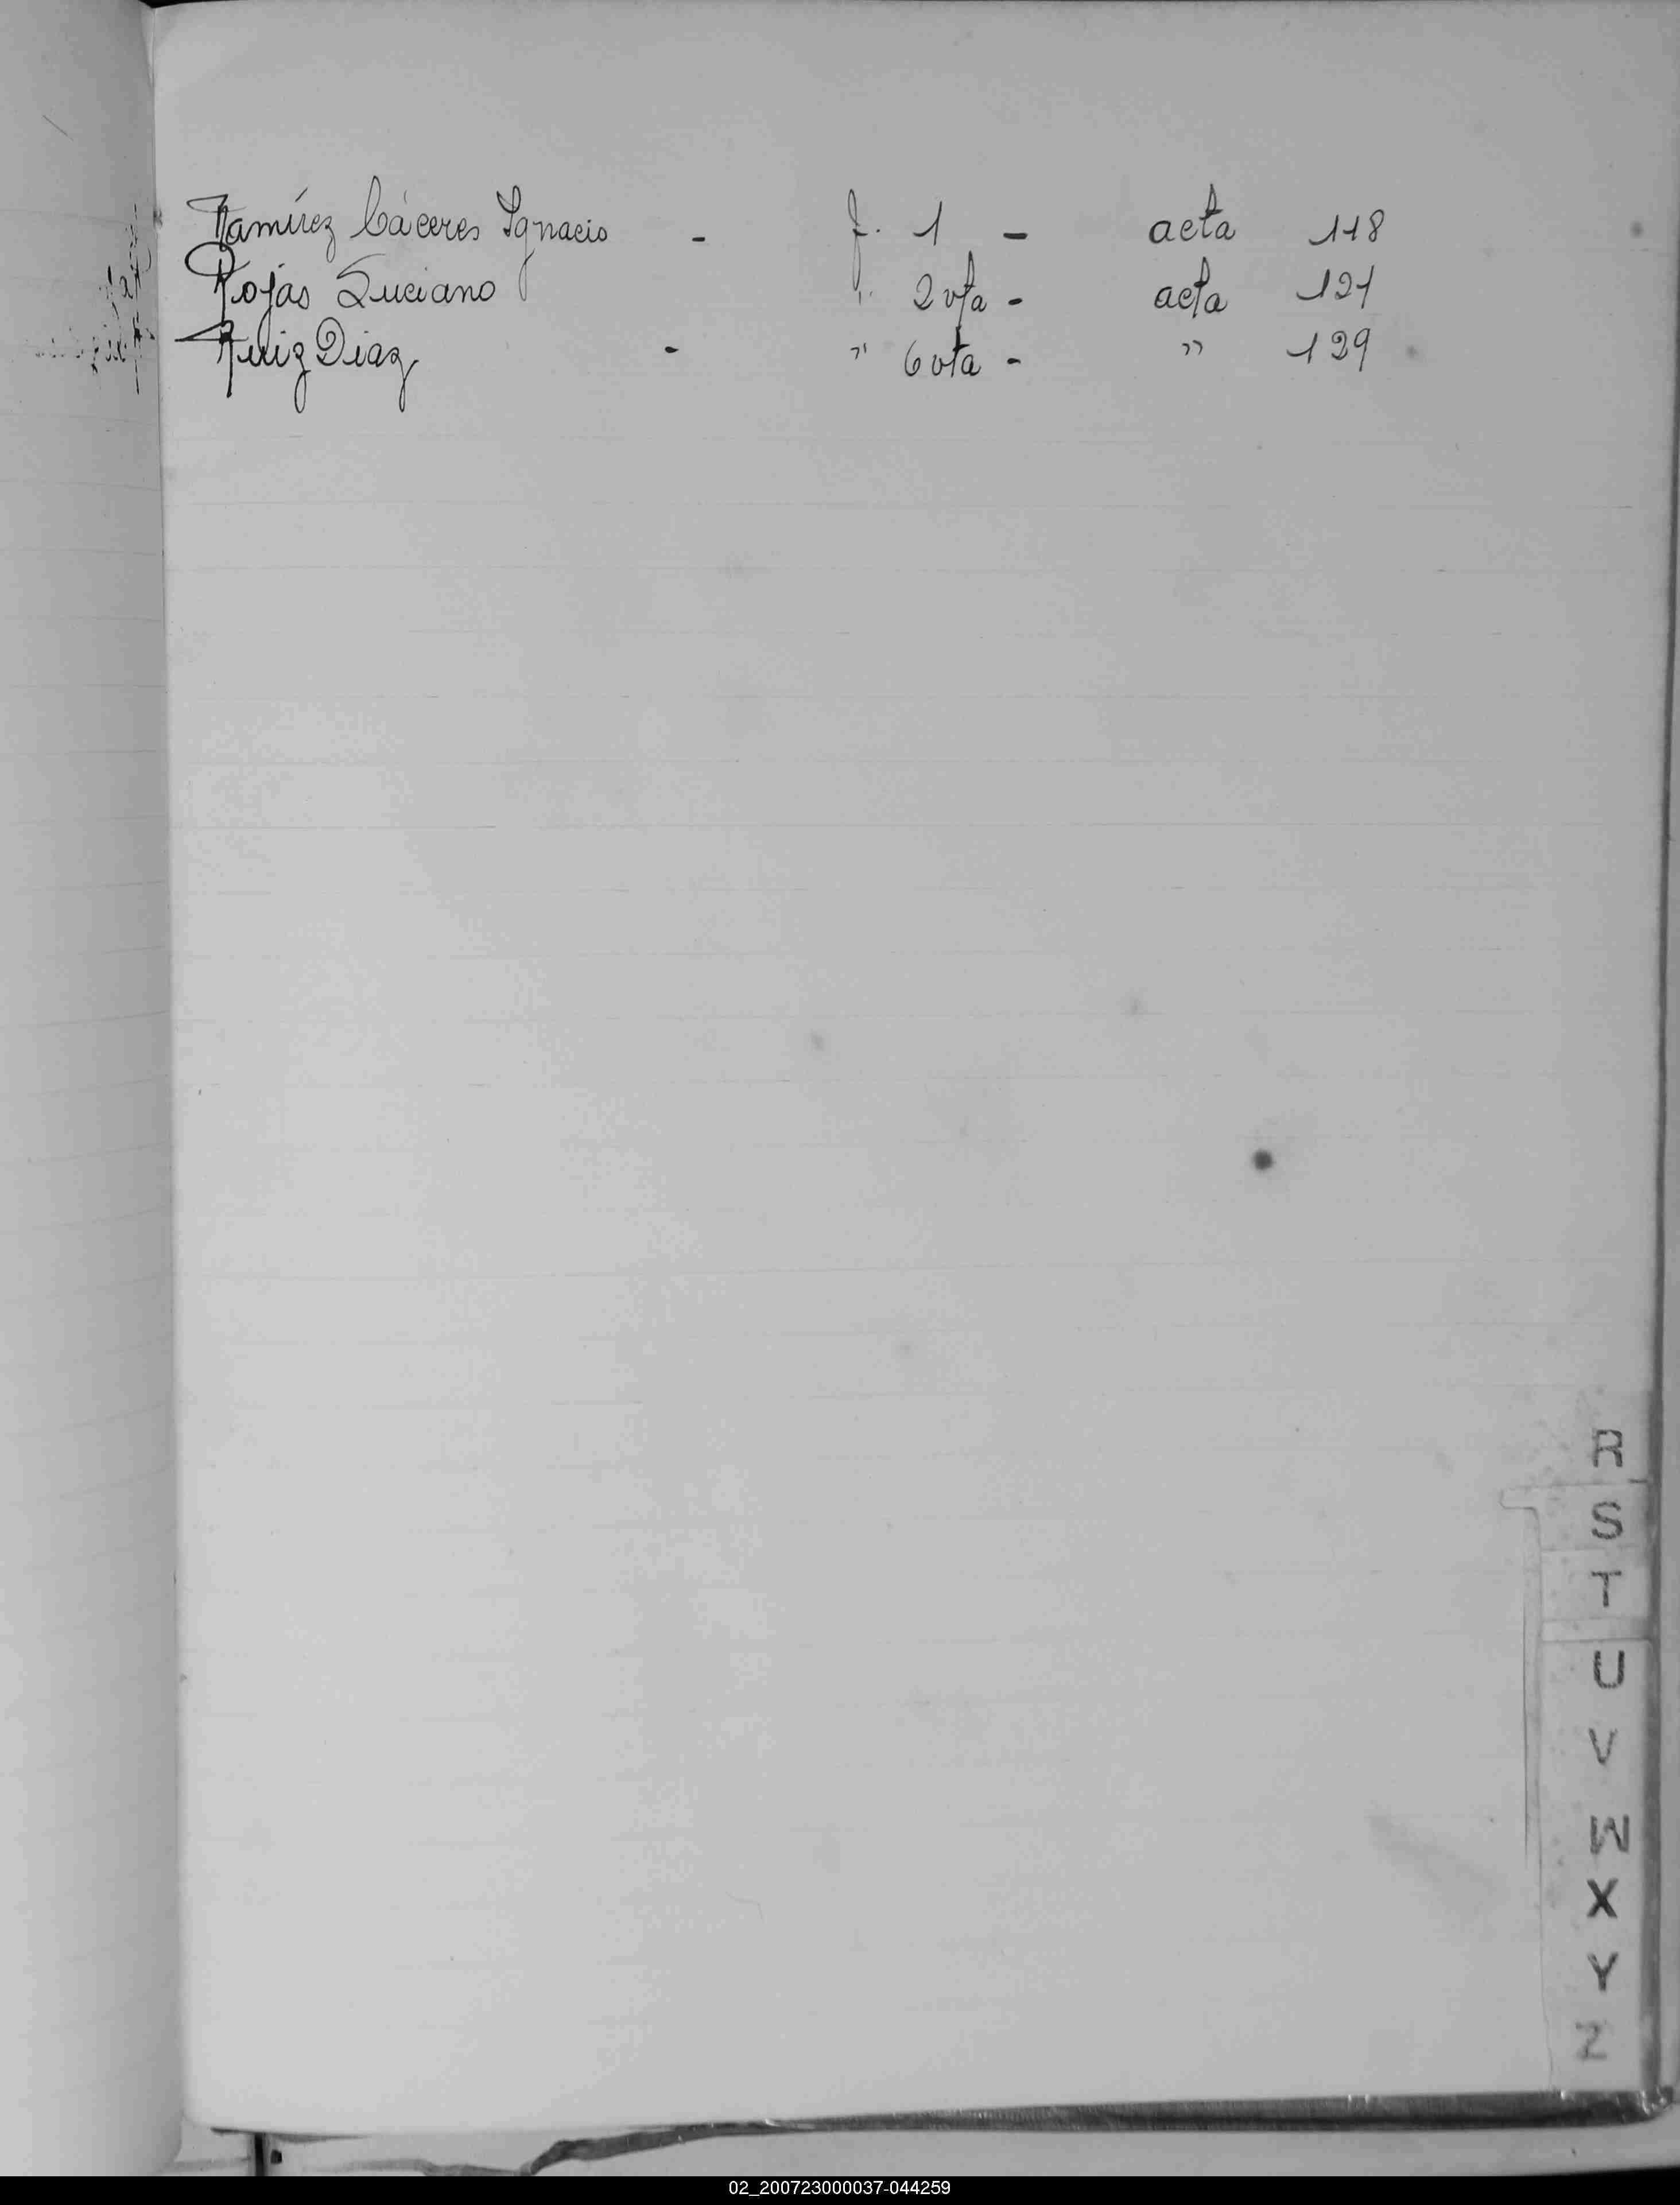 Ramírez Cáceres Ignacio - f. 1 - acta 118
Rojas Luciano " 2 vta - acta 121
Ruiz Diaz - " 6 vta - " 129
R
S
T
U
V
W
X
Y
Z
02_200723000037-044259